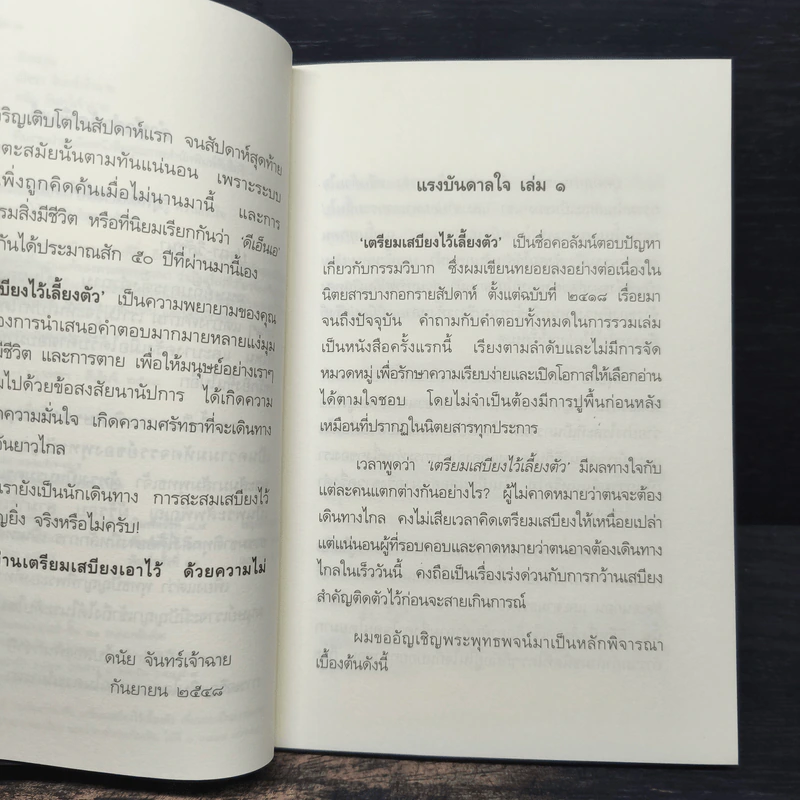 จริญเติบโตในสัปดาห์แรก จนสัปดาห์สุดท้าย
ตะสมัยนั้นตามทันแน่นอน เพราะระบบ
เพิ่งถูกคิดค้นเมื่อไม่นานมานี้ และการ
รมสิ่งมีชีวิต หรือที่นิยมเรียกกันว่า ‘ดีเอ็นเอ’
กันได้ประมาณสัก ๕๐ ปีที่ผ่านมานี้เอง
สบียงไว้เลี้ยงตัว’ เป็นความพยายามของคุณ
องการนำเสนอคำตอบมากมายหลายแง่มุม
ชีวิต และการตาย เพื่อให้มนุษย์อย่างเราๆ
มไปด้วยข้อสงสัยนานัปการ ได้เกิดความ
ดความมั่นใจ เกิดความศรัทธาที่จะเดินทาง
อันยาวไกล
เรายังเป็นนักเดินทาง การสะสมเสบียงไว้
ญยิ่ง จริงหรือไม่ครับ!
านเตรียมเสบียงเอาไว้ ด้วยความไม่
ดนัย จันทร์เจ้าฉาย
กันยายน ๒๕๔๘
แรงบันดาลใจ เล่ม ๑
‘เตรียมเสบียงไว้เลี้ยงตัว’ เป็นชื่อคอลัมน์ตอบปัญหา
เกี่ยวกับกรรมวิบาก ซึ่งผมเขียนทยอยลงอย่างต่อเนื่องใน
นิตยสารบางกอกรายสัปดาห์ ตั้งแต่ฉบับที่ ๒๔๑๘ เรื่อยมา
จนถึงปัจจุบัน คำถามกับคำตอบทั้งหมดในการรวมเล่ม
เป็นหนังสือครั้งแรกนี้ เรียงตามลำดับและไม่มีการจัด
หมวดหมู่ เพื่อรักษาความเรียบง่ายและเปิดโอกาสให้เลือกอ่าน
ได้ตามใจชอบ โดยไม่จำเป็นต้องมีการปูพื้นก่อนหลัง
เหมือนที่ปรากฏในนิตยสารทุกประการ
เวลาพูดว่า ‘เตรียมเสบียงไว้เลี้ยงตัว’ มีผลทางใจกับ
แต่ละคนแตกต่างกันอย่างไร? ผู้ไม่คาดหมายว่าตนจะต้อง
เดินทางไกล คงไม่เสียเวลาคิดเตรียมเสบียงให้เหนื่อยเปล่า
แต่แน่นอนผู้ที่รอบคอบและคาดหมายว่าตนอาจต้องเดินทาง
ไกลในเร็ววันนี้ คงถือเป็นเรื่องเร่งด่วนกับการกว้านเสบียง
สำคัญติดตัวไว้ก่อนจะสายเกินการณ์
ผมขออัญเชิญพระพุทธพจน์มาเป็นหลักพิจารณา
เบื้องต้นดังนี้